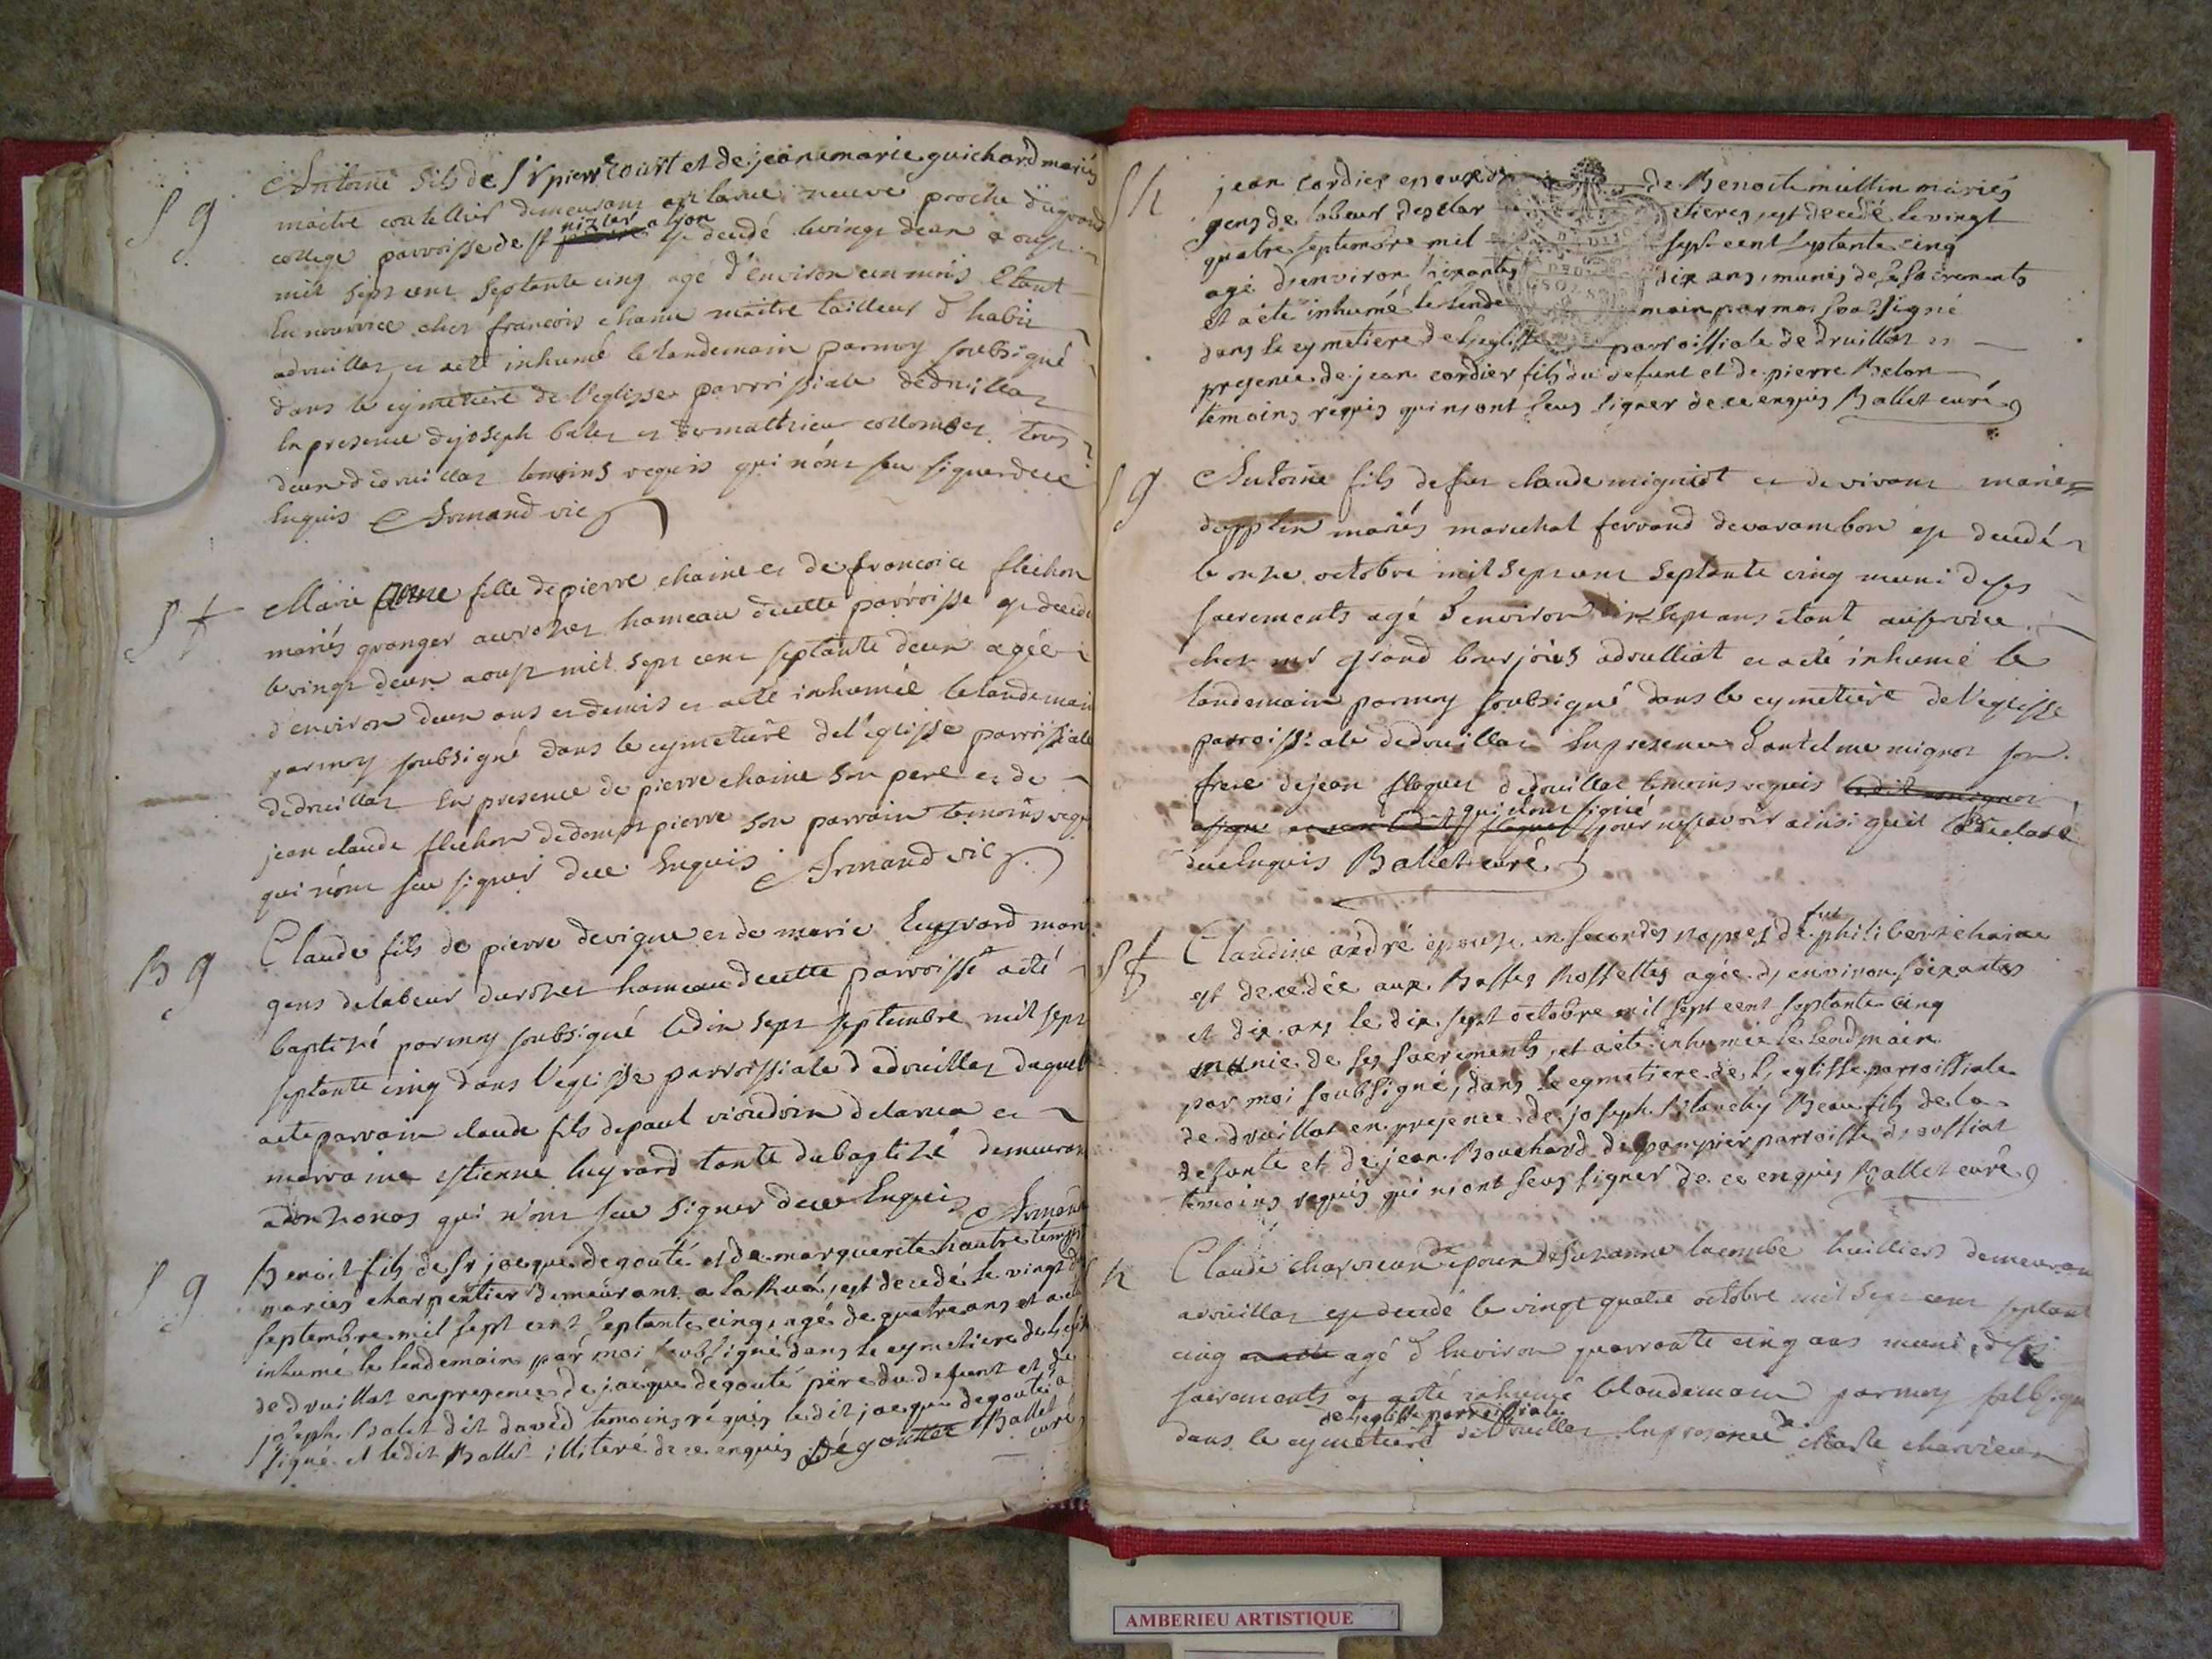 S g
Antoine fils de Sr pierre Court et de jeanemarie guichard mariés
maitre coutellier demeurans en la rue neuve proche du grand
college parroisse de st nizier a lyon est decedé le vingt deux aoust
mil sept cent septante cinq agé d'environ un mois etant
En nourrice chez francois chanu maitre tailleur d'habit
adruillat et a eté inhumé le landemain parmoy soubsigné
dans le cymetiere de l'eglisse parroissiale dedruillat
En presence dejoseph balet et de mathieu collomb tous
deux dedruillat temoins requis qui n'ont seu signer de ce
Enquis Armand vic
S f
Marie fille de pierre chaine et de francoise flechon
mariés granger au rozet hameau de cette parroisse est decedé
le vingt deux aoust mil sept cent septante agée
d'environ deux ans et demis et a eté inhumée le landemain
par moy soubsigné dans le cymetiere de l'eglisse parroissiale
dedruillat En presence de pierre chaine son pere et de
jean claude flechon dedompierre son parrain temoins requis
qui n'ont seu signer de ce Enquis Armand vic
B g
Claude fils de pierre devigne et de marie mariés
gens de labeur du rozet hameau de cette parroisse a eté
baptizé parmoy soubsigné le dix sept septembre mil sept
septante cinq dans l'eglisse parroissiale dedruillat duquel
a eté parrain claude fils de paul vioudoin delarua et
marraine estienne tante du baptizé demeurant
qui n'ont seu signer de ce Enquis Armand
S g
Benoit fils de Sr jacque degouté et de marguerite hautretemps
mariés charpentier demeurant a la Ruá, est decedé le vingt
septembre mil sept cent septante cinq, agé de quatre ans et a eté
inhumé le lendemain par moi soubsigné dans le cymetiere de l'eglise
de druillat en presence de jacque degouté père du defunt et de
joseph Balet dit david temoins réquis ledit jacque degouté a
signé et ledit Ballet illiteré de ce enquis Dégouttae Ballet curé
S h
jean Cordier epoux de Benoite mustin mariés
gens de labeur est decedé le vingt
quatre septembre mil sept cent septante cinq
agé d'environ soixante dix ans, munis de se sacrements
et a eté inhumé le lendemain par moi soubsigné
dans le cymetiere de l'eglisse parroissiale de druillat en
presence de jean cordier fils du defunt et de pierre Belon
temoins requis qui n'ont seus signer de ce enquis Ballet curé
S g
Antoine fils de feu claude migniot et de vivant marie
mariés marechal ferrand devarambon est decedé
le onze octobre mil sept cent septante cinq muni de ses
sacrements agé d'environ dix sept ans etant au service
chez mr bourjois adruilliat et a eté inhumé le
landemain parmoy soubsigné dans le cymetiere de l'eglisse
parroissiale dedruillat En presence d'antelme mignot son
frere dejean floquet dedruillat temoins requis
qui n'ont signé pour ne scavoir ainsi qu'il declaré
de ce Enquis Ballet curé
S f
Claudine andré epouse en secondes nopces de feu philibert chaine
est decedée aux Basses Rossettes agée d'environ soixantes
et dix ans le dix sept octobre mil sept cent septante cinq
munie de ses sacrements, et a eté inhumée le lendmain
par moi soubsigné, dans le cymetiere de l'eglisse parroissiale
de druillat en presence de joseph Blanchy Beau fils de la
defante et de jean Bouchard de pampier parroisse de
temoins requis qui n'ont seus signer de ce enquis Ballet curé
h
Claude charvieux epoux de Suzanne lacombe huilliers demeurant
adruillat est decedé le vingt quatre octobre mil sept cent septante
cinq agé d'Environ quarrante cinq ans muni de ses
sacrements et a eté inhumé le landemain par moy soubsigné
dans le cymetiere de l'eglisse parroissiale dedruillat En presence de charle charvieux
AMBERIEU ARTISTIQUE